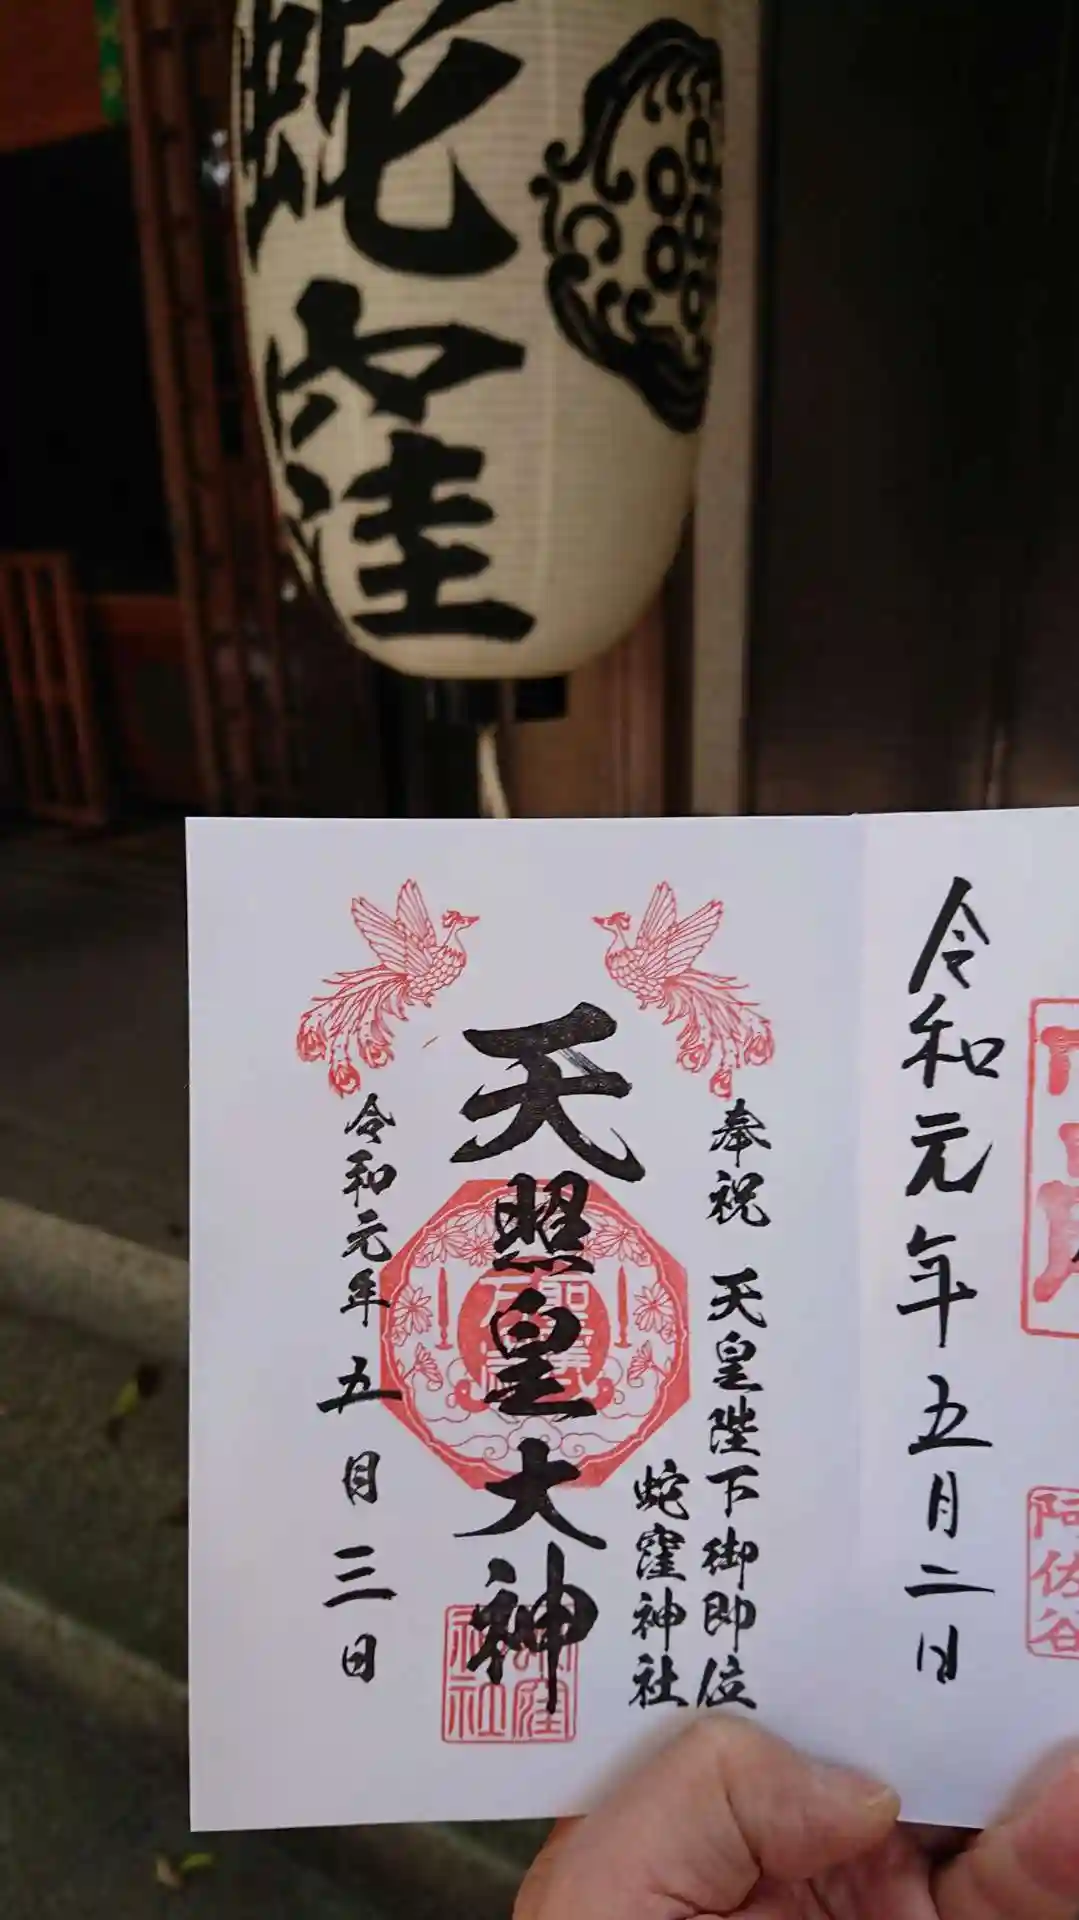 蛇窪
令和元年五月二日
阿佐谷
奉祝 天皇陛下御即位
蛇窪神社
天照皇大神
令和元年五月三日